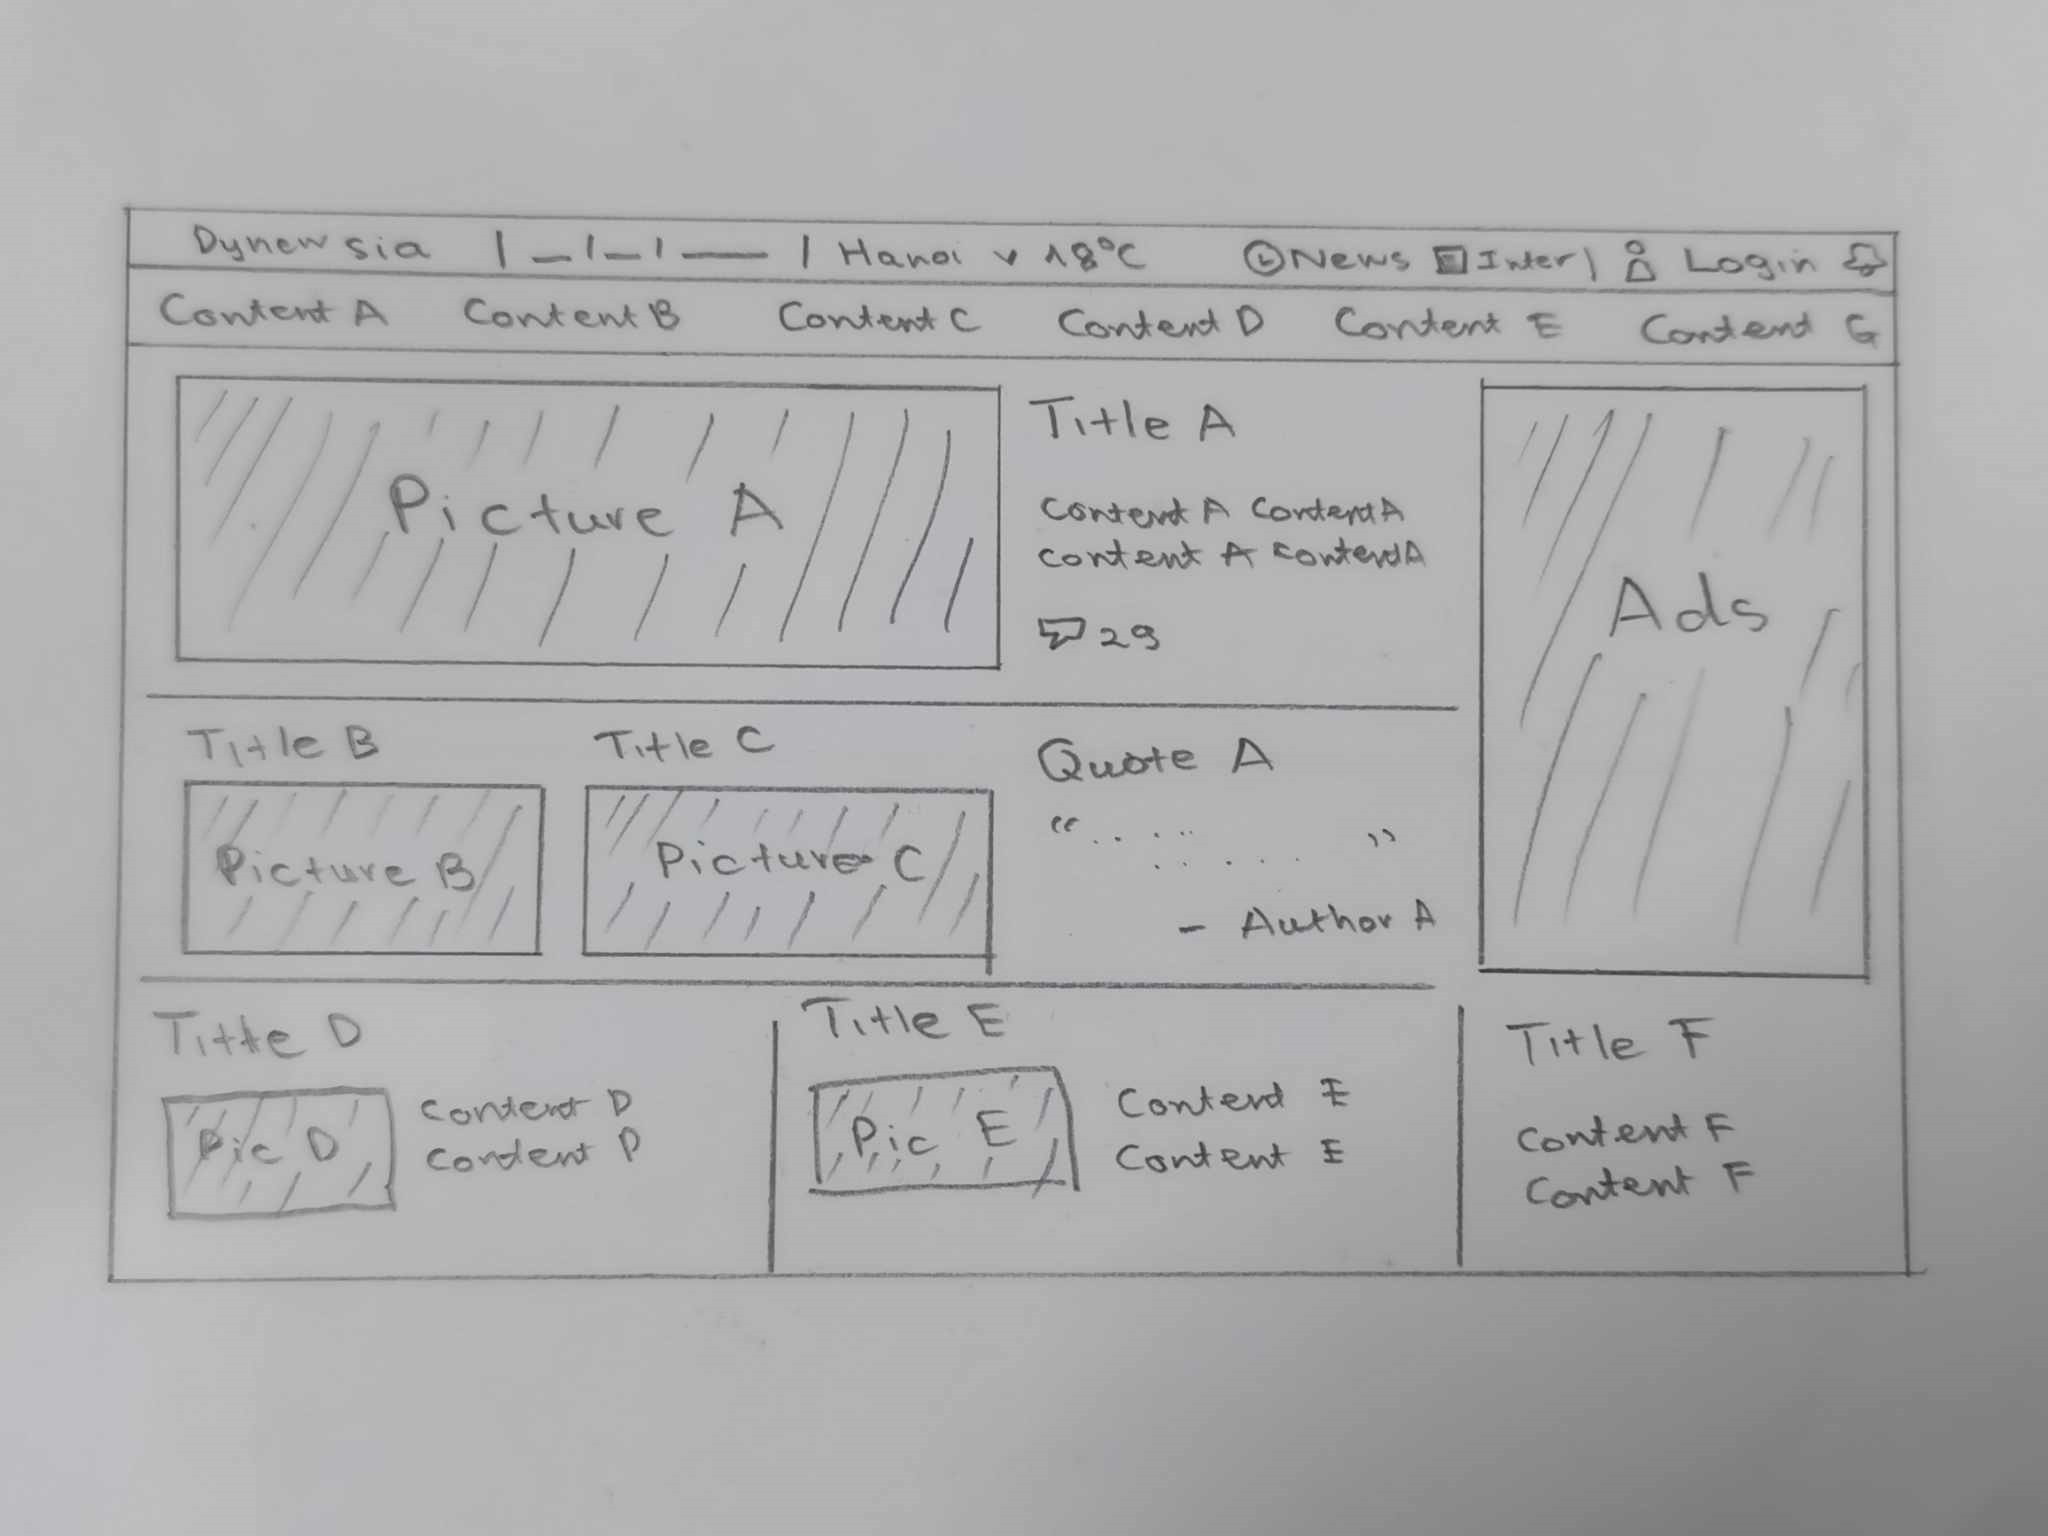 Dynewsia | _/_/__ | Hanoi v 18°C News Inter | Login
Content A Content B Content C Content D Content E Content G
Picture A
Title A
Content A Content A
Content A Content A
29
Ads
Title B
Picture B
Title C
Picture C
Quote A
“.. ... ..... ”
- Author A
Title D
Pic D
Content D
Content D
Title E
Pic E
Content E
Content E
Title F
Content F
Content F